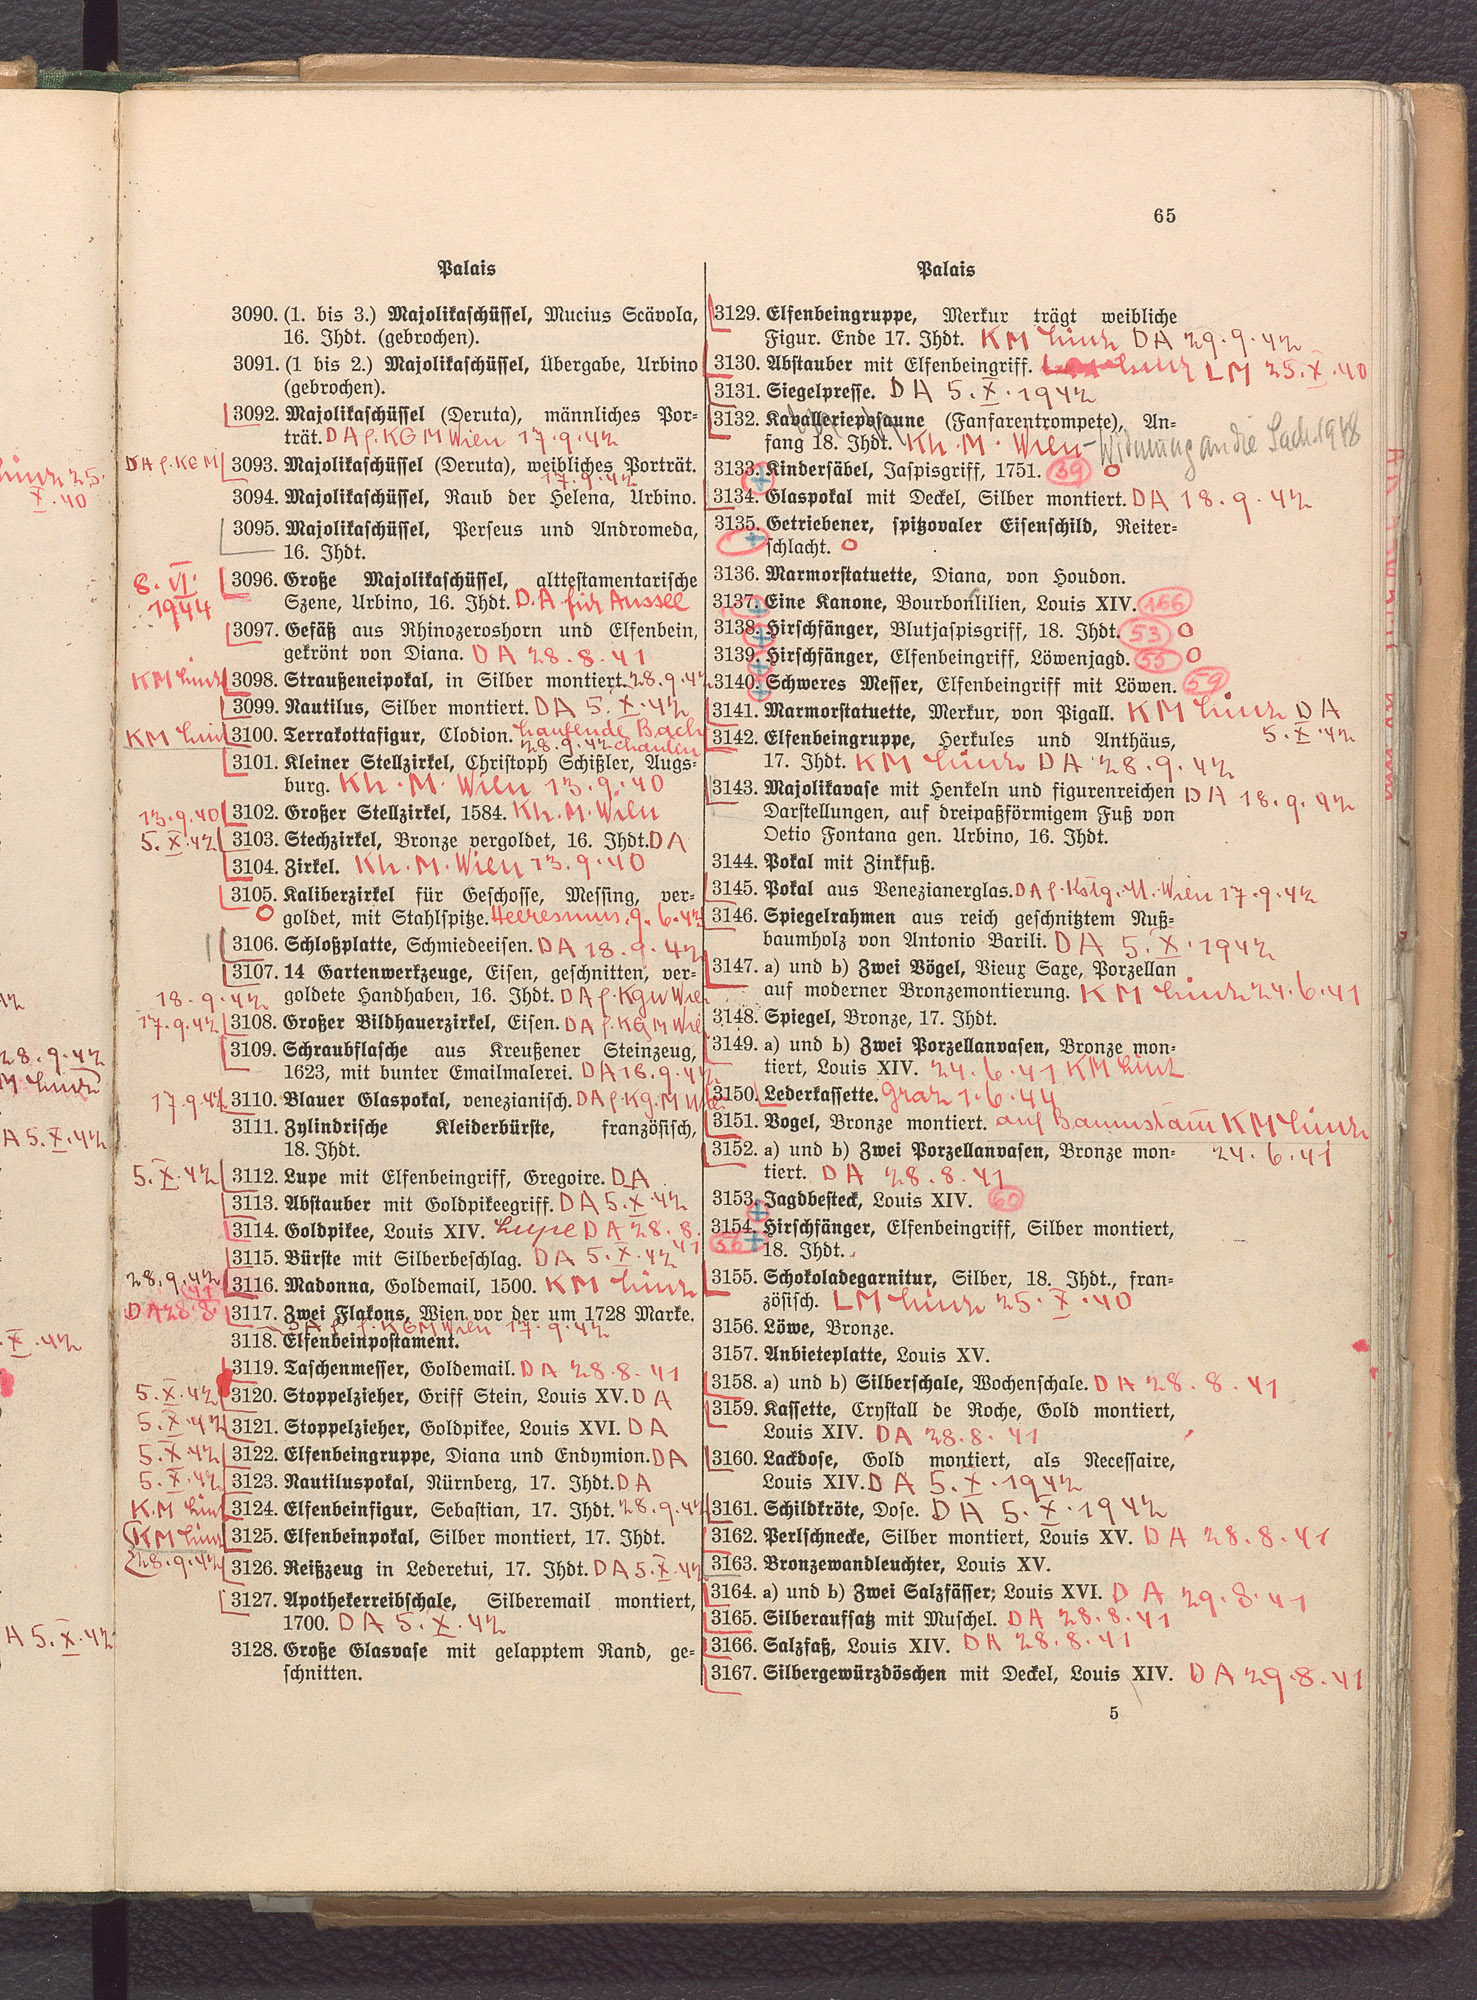 65
Palais
3090. (1. bis 3.) Majolikaschüssel, Mucius Scävola,
16. Jhdt. (gebrochen).
3091. (1 bis 2.) Majolikaschüssel, Übergabe, Urbino
(gebrochen).
3092. Majolikaschüssel (Deruta), männliches Por-
trät. DA f. KGM Wien 17.9.42
DA f. KGM 3093. Majolikaschüssel (Deruta), weibliches Porträt.
17.9.42
3094. Majolikaschüssel, Raub der Helena, Urbino.
3095. Majolikaschüssel, Perseus und Andromeda,
16. Jhdt.
8. VI. 3096. Große Majolikaschüssel, alttestamentarische
1944 Szene, Urbino, 16. Jhdt. D.A für Aussee
3097. Gefäß aus Rhinozeroshorn und Elfenbein,
gekrönt von Diana. DA 28.8.41
KM Linz 3098. Straußeneipokal, in Silber montiert. 28.9.42
3099. Nautilus, Silber montiert. DA 5.X.42
KM Linz 3100. Terrakottafigur, Clodion. Laufende Bach
28.9.42
3101. Kleiner Stellzirkel, Christoph Schißler, Augs-
burg. Kh. M. Wien 13.9.40
13.9.40 3102. Großer Stellzirkel, 1584. Kh. M. Wien
5.X.42 3103. Stechzirkel, Bronze vergoldet, 16. Jhdt. DA
3104. Zirkel. Kh. M. Wien 13.9.40
3105. Kaliberzirkel für Geschosse, Messing, ver-
goldet, mit Stahlspitze. Heeresmus. 9.6.42
3106. Schloßplatte, Schmiedeeisen. DA 18.9.42
3107. 14 Gartenwerkzeuge, Eisen, geschnitten, ver-
18.9.42 goldete Handhaben, 16. Jhdt. DA f. KgM Wien
17.9.42 3108. Großer Bildhauerzirkel, Eisen. DA f. KGM Wien
3109. Schraubflasche aus Kreußener Steinzeug,
1623, mit bunter Emailmalerei. DA 18.9.42
17.9.42 3110. Blauer Glaspokal, venezianisch. DA f. KG. M Wien
3111. Zylindrische Kleiderbürste, französisch,
18. Jhdt.
5.X.42 3112. Lupe mit Elfenbeingriff, Gregoire. DA
3113. Abstauber mit Goldpikeegriff. DA 5.X.42
3114. Goldpikee, Louis XIV. Lupe DA 28.8.41
3115. Bürste mit Silberbeschlag. DA 5.X.42
28.9.42 3116. Madonna, Goldemail, 1500. KM Linz
DA 28.8.41 3117. Zwei Flakons, Wien vor der um 1728 Marke.
DA f. KGM Wien 17.9.42
3118. Elfenbeinpostament.
3119. Taschenmesser, Goldemail. DA 28.8.41
5.X.42 3120. Stoppelzieher, Griff Stein, Louis XV. DA
5.X.42 3121. Stoppelzieher, Goldpikee, Louis XVI. DA
5.X.42 3122. Elfenbeingruppe, Diana und Endymion. DA
5.X.42 3123. Nautiluspokal, Nürnberg, 17. Jhdt. DA
K.M Linz 3124. Elfenbeinfigur, Sebastian, 17. Jhdt. 28.9.42
KM Linz 3125. Elfenbeinpokal, Silber montiert, 17. Jhdt.
28.9.42
3126. Reißzeug in Lederetui, 17. Jhdt. DA 5.X.42
3127. Apothekerreibschale, Silberemail montiert,
1700. DA 5.X.42
3128. Große Glasvase mit gelapptem Rand, ge-
schnitten.
Palais
3129. Elfenbeingruppe, Merkur trägt weibliche
Figur. Ende 17. Jhdt. KM Linz DA 29.9.42
3130. Abstauber mit Elfenbeingriff. LM 25.X.40
3131. Siegelpresse. DA 5.X.1942
3132. Kavallerieposaune (Fanfarentrompete), An-
fang 18. Jhdt. Kh. M. Wien - Widmung an die Sach. 1948
3133. Kindersäbel, Jaspisgriff, 1751. 39
3134. Glaspokal mit Deckel, Silber montiert. DA 18.9.42
3135. Getriebener, spitzovaler Eisenschild, Reiter-
schlacht.
3136. Marmorstatuette, Diana, von Houdon.
3137. Eine Kanone, Bourbonlilien, Louis XIV. 166
3138. Hirschfänger, Blutjaspisgriff, 18. Jhdt. 53
3139. Hirschfänger, Elfenbeingriff, Löwenjagd. 55
3140. Schweres Messer, Elfenbeingriff mit Löwen. 59
3141. Marmorstatuette, Merkur, von Pigall. KM Linz DA
5.X.42
3142. Elfenbeingruppe, Herkules und Anthäus,
17. Jhdt. KM Linz DA 28.9.42
3143. Majolikavase mit Henkeln und figurenreichen DA 18.9.42
Darstellungen, auf dreipaßförmigem Fuß von
Oetio Fontana gen. Urbino, 16. Jhdt.
3144. Pokal mit Zinkfuß.
3145. Pokal aus Venezianerglas. DA f. Kstg. M. Wien 17.9.42
3146. Spiegelrahmen aus reich geschnitztem Nuß-
baumholz von Antonio Barili. DA 5.X.1942
3147. a) und b) Zwei Vögel, Vieux Saxe, Porzellan
auf moderner Bronzemontierung. KM Linz 24.6.41
3148. Spiegel, Bronze, 17. Jhdt.
3149. a) und b) Zwei Porzellanvasen, Bronze mon-
tiert, Louis XIV. 24.6.41 KM Linz
3150. Lederkassette. Graz 1.6.44
3151. Vogel, Bronze montiert. auf Baumstam KM Linz
24.6.41
3152. a) und b) Zwei Porzellanvasen, Bronze mon-
tiert. DA 28.8.41
3153. Jagdbesteck, Louis XIV. 60
3154. Hirschfänger, Elfenbeingriff, Silber montiert,
56 18. Jhdt.
3155. Schokoladegarnitur, Silber, 18. Jhdt., fran-
zösisch. LM Linz 25.X.40
3156. Löwe, Bronze.
3157. Anbieteplatte, Louis XV.
3158. a) und b) Silberschale, Wochenschale. DA 28.8.41
3159. Kassette, Crystall de Roche, Gold montiert,
Louis XIV. DA 28.8.41
3160. Lackdose, Gold montiert, als Necessaire,
Louis XIV. DA 5.X.1942
3161. Schildkröte, Dose. DA 5.X.1942
3162. Perlschnecke, Silber montiert, Louis XV. DA 28.8.41
3163. Bronzewandleuchter, Louis XV.
3164. a) und b) Zwei Salzfässer, Louis XVI. DA 29.8.41
3165. Silberaufsatz mit Muschel. DA 28.8.41
3166. Salzfaß, Louis XIV. DA 28.8.41
3167. Silbergewürzdöschen mit Deckel, Louis XIV. DA 29.8.41
5